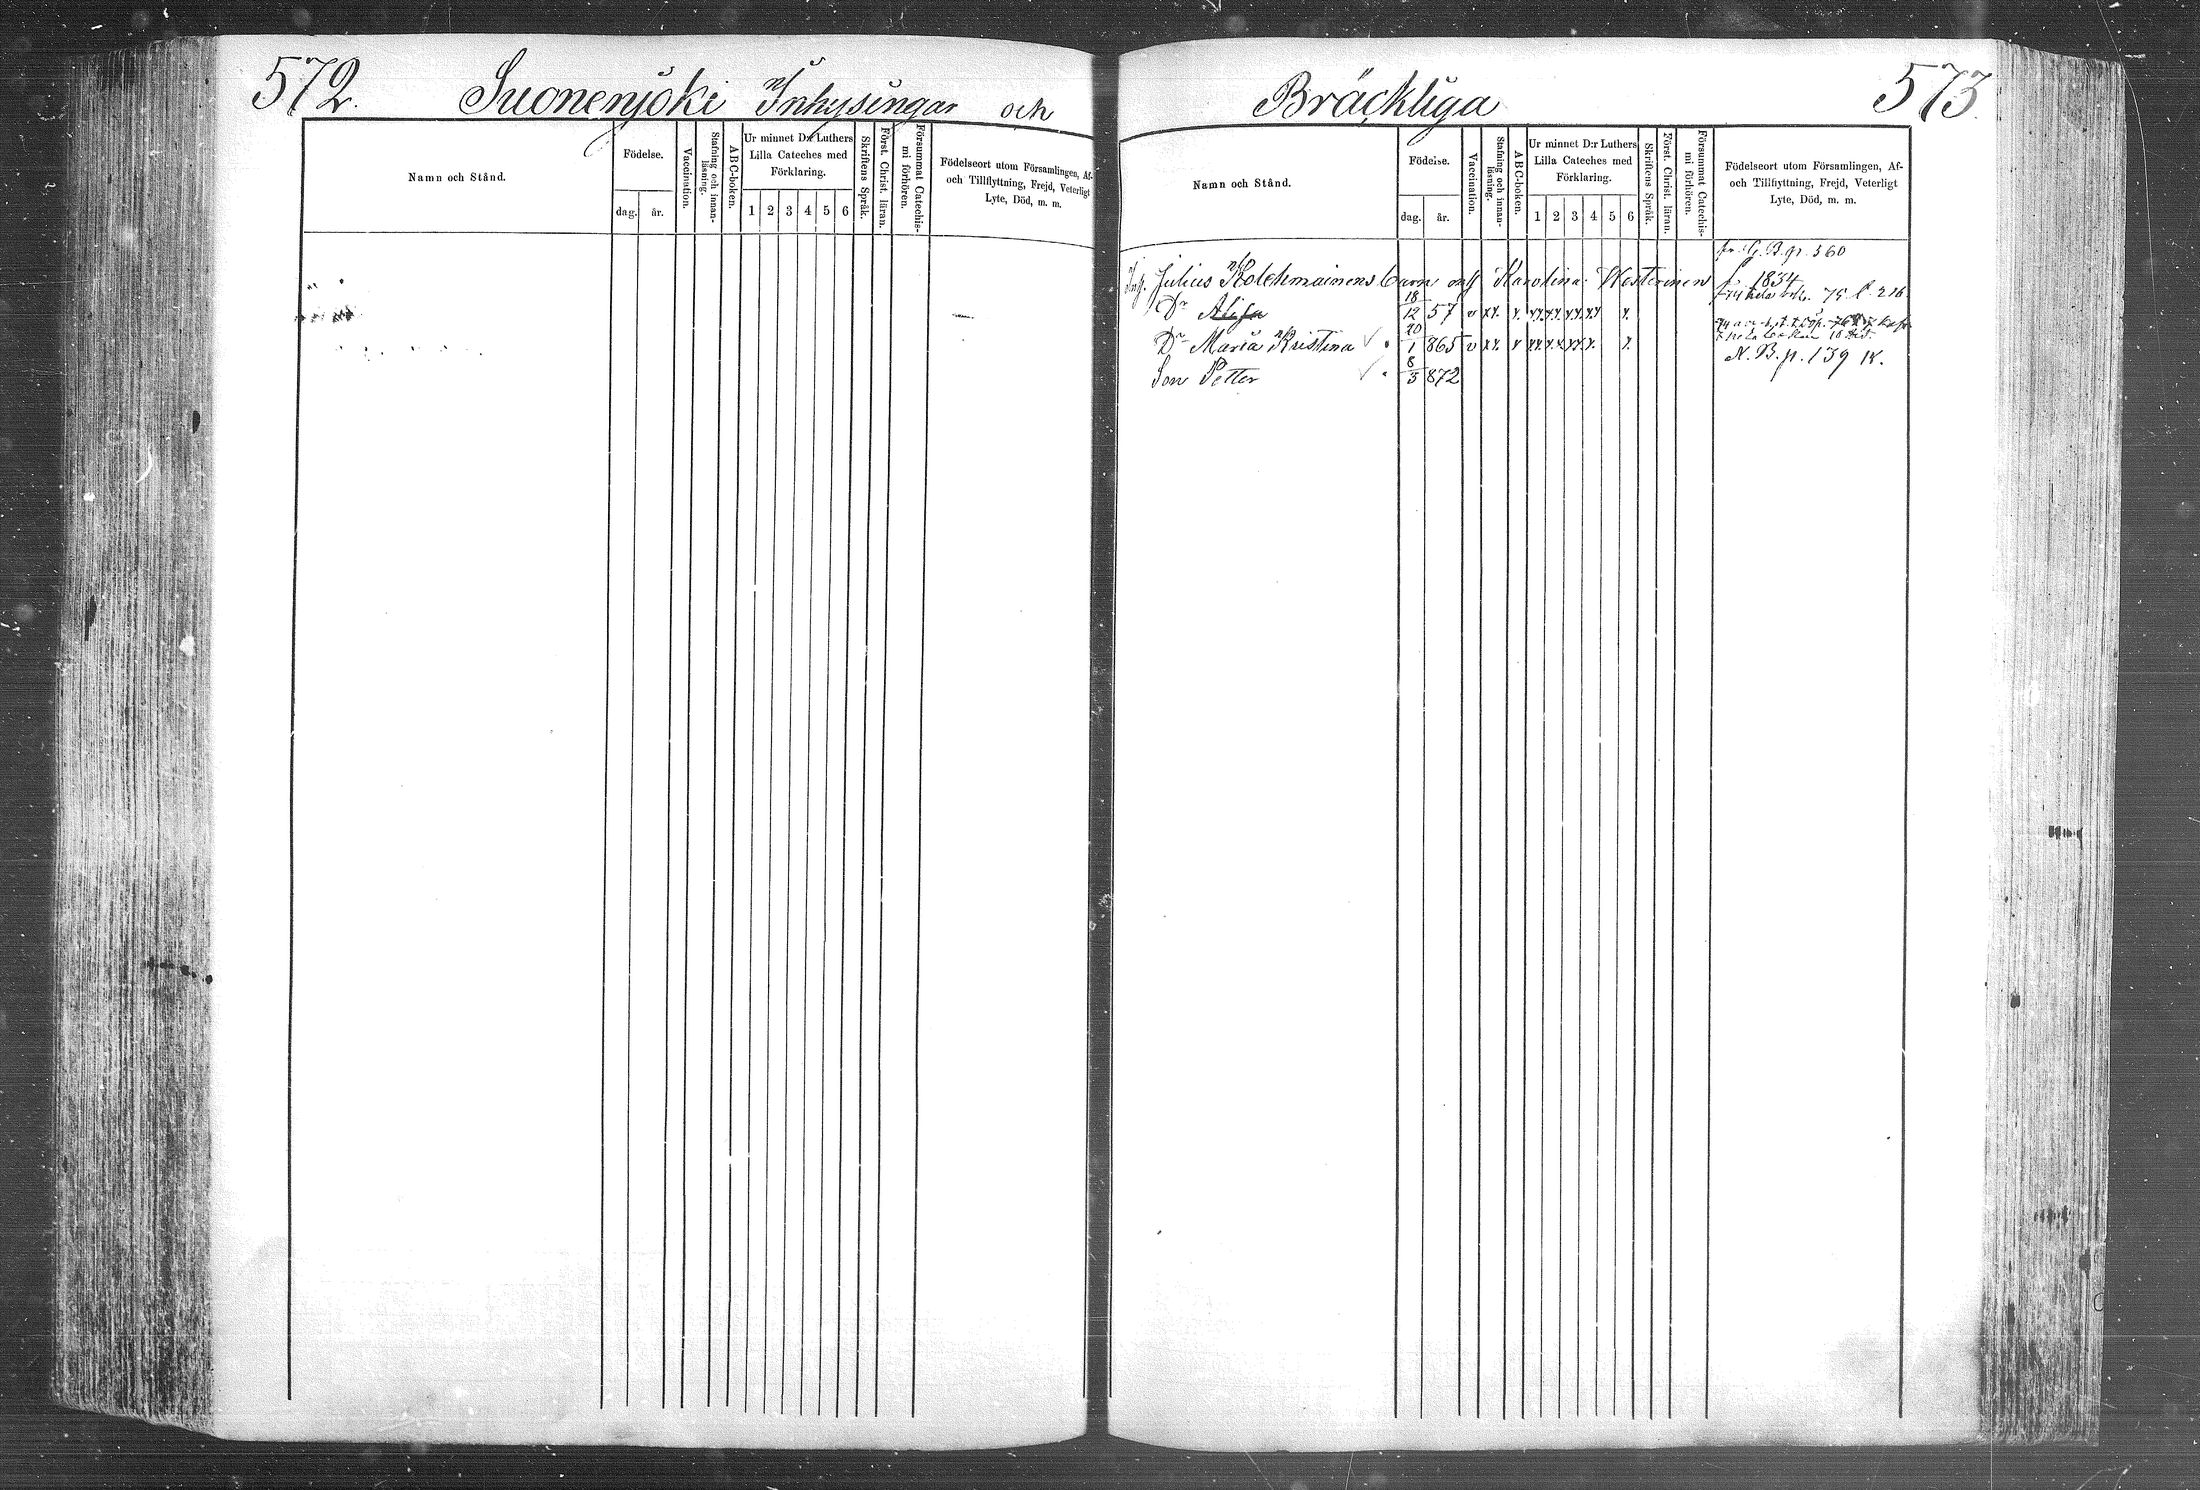 572.
Suonenjoki Inhysingar och
Namn och Stånd.
Födelse.
dag.
år.
Vaccination.
Stafning och innan-
läsning.
ABC-boken.
Ur minnet D:r Luthers
Lilla Cateches med
Förklaring.
1 2 3 4 5 6
Skriftens Språk.
Först. Christ. läran.
Försummat Catechis-
mi förhören.
Födelseort utom Församlingen, Af-
och Tillflyttning, Frejd, Veterligt
Lyte, Död, m. m.
Bräckliga
573.
Namn och Stånd.
Födelse.
dag.
år.
Vaccination.
Stafning och innan-
läsning.
ABC-boken.
Ur minnet D:r Luthers
Lilla Cateches med
Förklaring.
1 2 3 4 5 6
Skriftens Språk.
Först. Christ. läran.
Försummat Catechis-
mi förhören.
Födelseort utom Församlingen, Af-
och Tillflyttning, Frejd, Veterligt
Lyte, Död, m. m.
560
Inh. Julius Kolehmainens barn Karolina Westerinen f. 1834
Dr Alisa 18/12 57 v 75. l. 216.
Dr Maria Kristina 20/1 865 v
Son Petter 8/3 872 N. B. p. 139